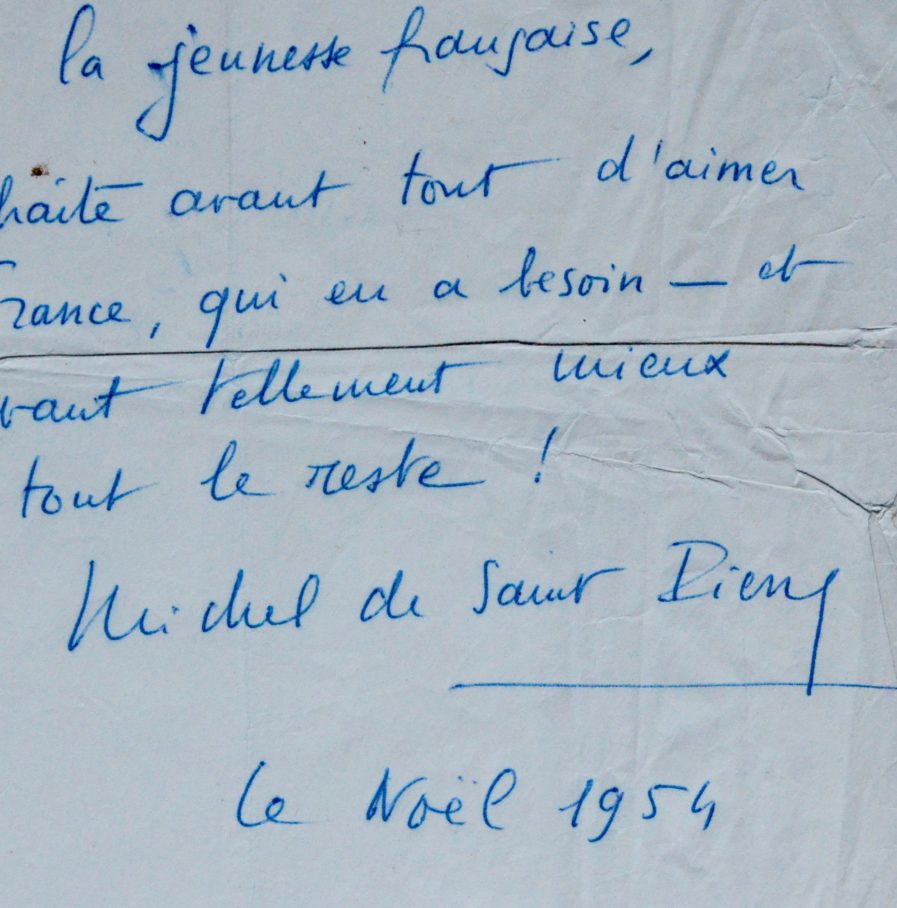 la jeunesse française,
haite avant tout d'aimer
France, qui en a besoin — et
vaut tellement mieux
tout le reste !
Michel de Saint Pierre
le Noël 1954